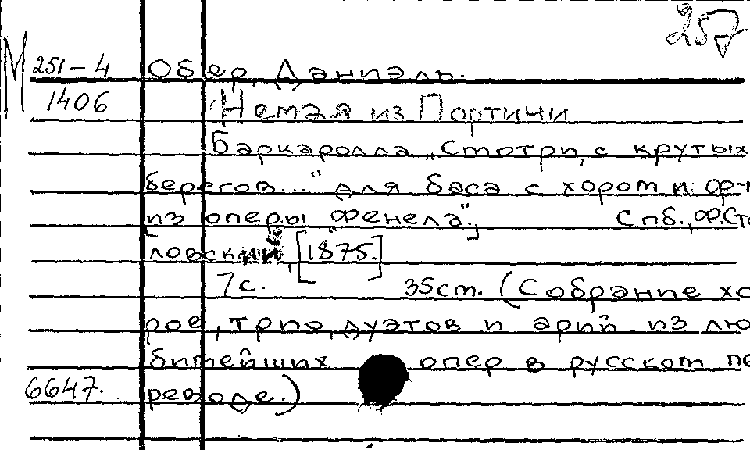 257
М 251-4 Обер, Даниэль.
1406 [Немая из Портичи
Баркаролла "Смотри, с крутых
берегов..." для баса с хором и ф-п
из оперы "Фенела".] Спб., Ф.Сте
ловский, [1875.]
7с. 35см. (Собрание хо
ров, трио, дуэтов и арий из лю
битейших опер в русском пе
6647. реводе.)